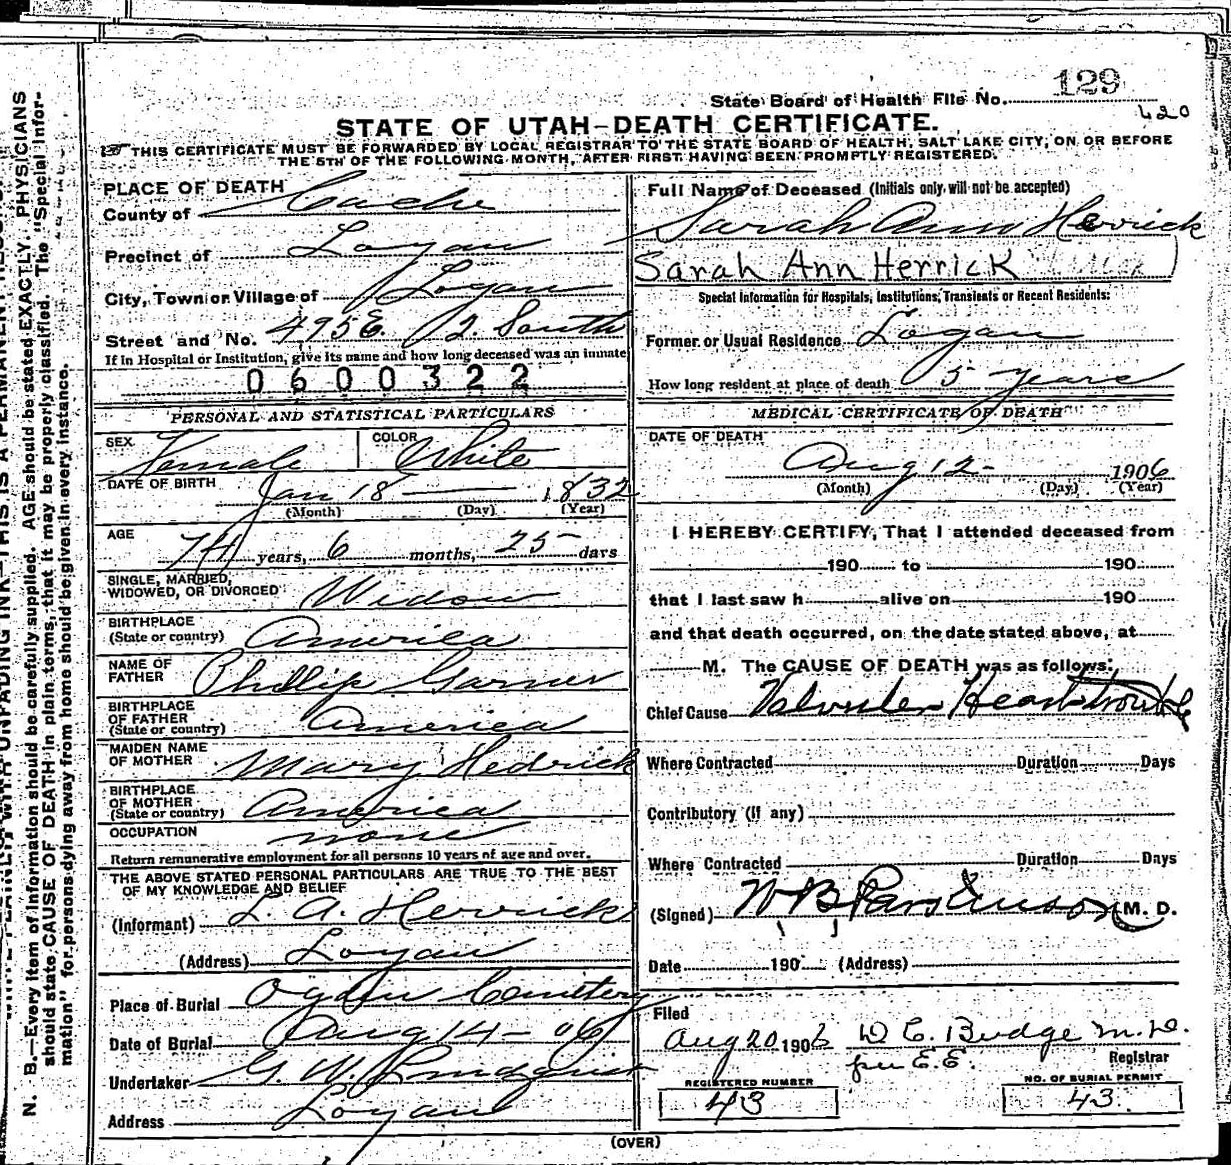 129
State Board of Health File No.
420
STATE OF UTAH—DEATH CERTIFICATE.
THIS CERTIFICATE MUST BE FORWARDED BY LOCAL REGISTRAR TO THE STATE BOARD OF HEALTH, SALT LAKE CITY, ON OR BEFORE
THE 5TH OF THE FOLLOWING MONTH, AFTER FIRST HAVING BEEN PROMPTLY REGISTERED.
PLACE OF DEATH
County of Cache
Precinct of Logan
City, Town or Village of Logan
Street and No. 495 E 2. South
If in Hospital or Institution, give its name and how long deceased was an inmate
0600322
PERSONAL AND STATISTICAL PARTICULARS
SEX Female COLOR White
DATE OF BIRTH Jan 18 1832
(Month) (Day) (Year)
AGE 74 years, 6 months, 25 days
SINGLE, MARRIED,
WIDOWED, OR DIVORCED Widow
BIRTHPLACE
(State or country) America
NAME OF
FATHER Phillip Garner
BIRTHPLACE
OF FATHER
(State or country) America
MAIDEN NAME
OF MOTHER Mary Hedrick
BIRTHPLACE
OF MOTHER
(State or country) America
OCCUPATION none
Return remunerative employment for all persons 10 years of age and over.
THE ABOVE STATED PERSONAL PARTICULARS ARE TRUE TO THE BEST
OF MY KNOWLEDGE AND BELIEF
(Informant) L. A. Herrick
(Address) Logan
Place of Burial Ogden Cemetery
Date of Burial Aug 14 - 06
Undertaker G. W. Lindquist
Address Logan
Full Name of Deceased (Initials only will not be accepted)
Sarah Ann Herrick
Sarah Ann Herrick
Special Information for Hospitals, Institutions, Transients or Recent Residents:
Former or Usual Residence Logan
How long resident at place of death 5 years
MEDICAL CERTIFICATE OF DEATH
DATE OF DEATH
Aug 12 - 1906
(Month) (Day) (Year)
I HEREBY CERTIFY, That I attended deceased from
190 to 190
that I last saw h alive on 190
and that death occurred, on the date stated above, at
M. The CAUSE OF DEATH was as follows:
Chief Cause Valvular Heart trouble
Where Contracted Duration Days
Contributory (if any)
Where Contracted Duration Days
(Signed) W B Parkinson M. D.
Date 190 (Address)
Filed
Aug 20 1906 D C Budge M.D.
per E.E. Registrar
REGISTERED NUMBER
43
NO. OF BURIAL PERMIT
43
(OVER)
N. B.—Every item of information should be carefully supplied. AGE should be stated EXACTLY. PHYSICIANS
should state CAUSE OF DEATH in plain terms, that it may be properly classified. The "Special Infor-
mation" for persons dying away from home should be given in every instance.